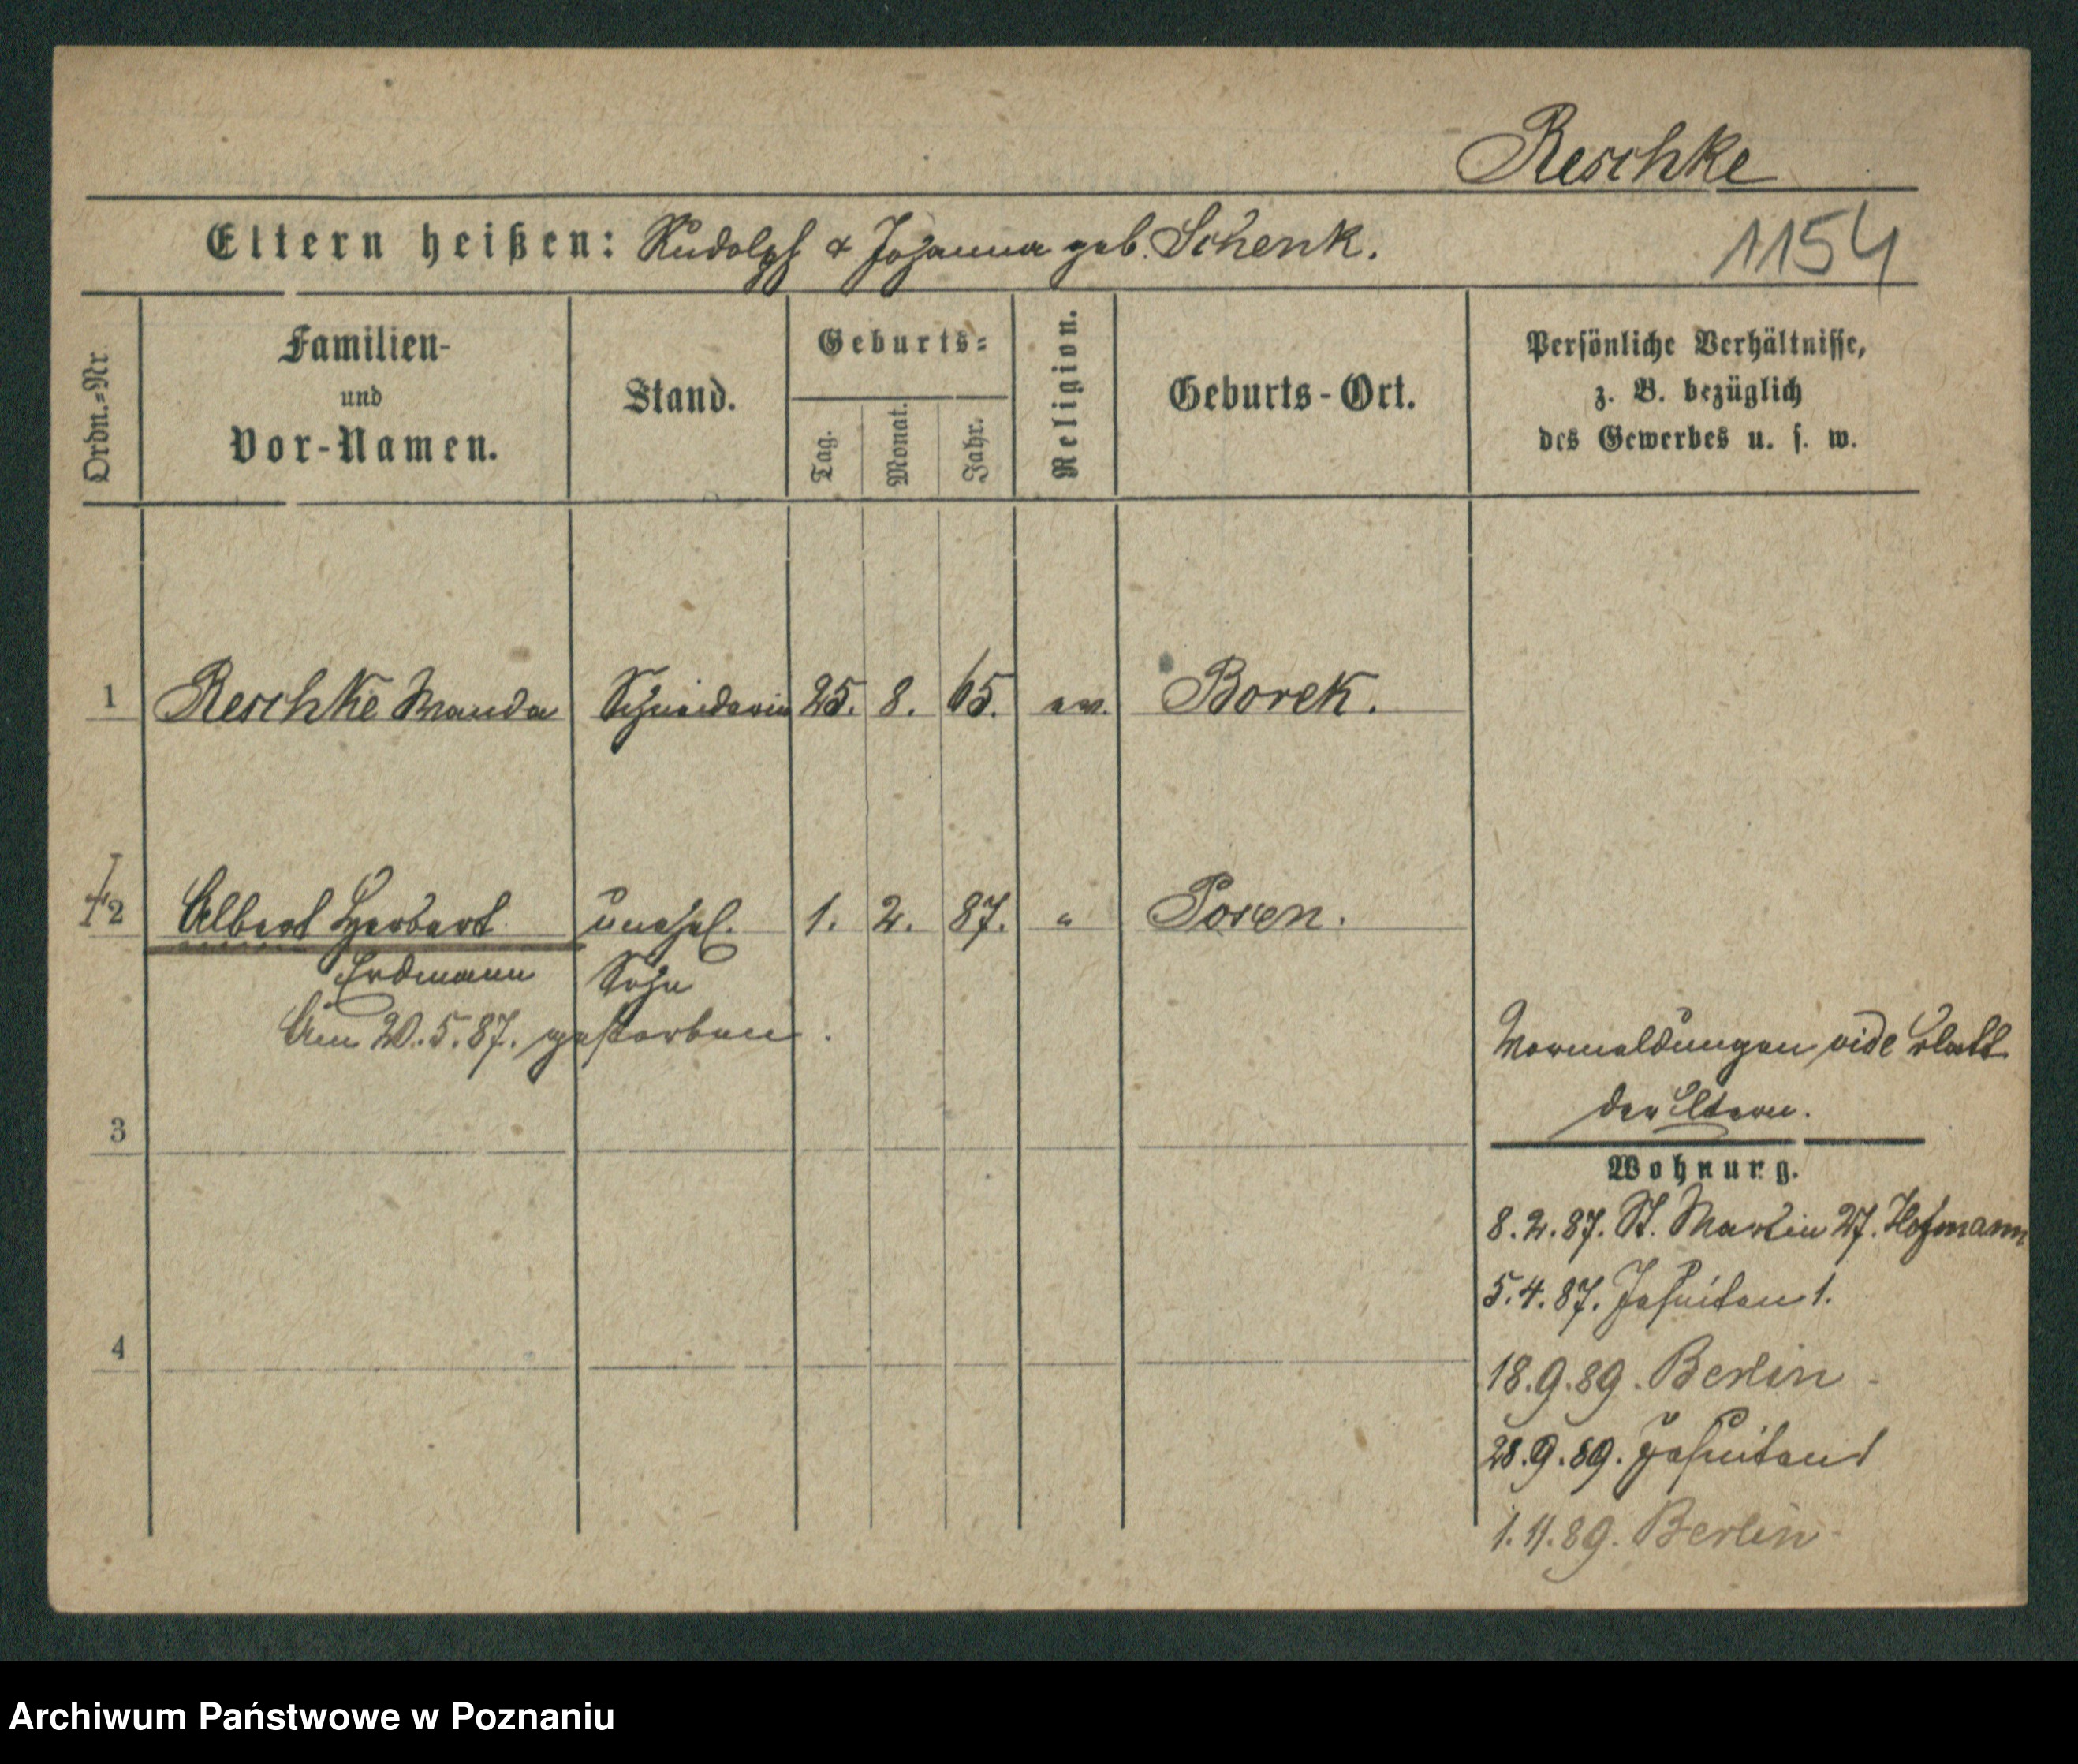 Reschke
Eltern heißen: Rudolph & Johanna geb. Schenk.
1154
Ordn.-Nr
Familien-
und
Vor-Namen.
Stand.
Geburts-
Tag.
Monat.
Jahr.
Religion.
Geburts-Ort.
Persönliche Verhältnisse,
z. B. bezüglich
des Gewerbes u. s. w.
1 Reschke Wanda Schneiderin 25. 8. 65. ev. Borek.
† 2 Albert Herbert unehel. 1. 2. 87. " Posen.
Erdmann Sohn
Am 20.5.87. gestorben.
Vormeldungen vide Blatt
der Eltern.
3
Wohnung.
8.2.87. St. Martin 27. Hofmann
5.4.87. Jesuiten 1.
4
18.9.89. Berlin -
28.9.89. Jesuiten 1
1.11.89. Berlin -
Archiwum Państwowe w Poznaniu